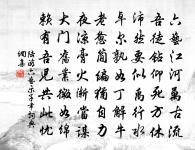 六藝江河萬古流
吾徒鑽仰死方休
沛然要似禹行水
卓爾孰如丁解牛
老憊簡編猶自力
夜涼燈火漸當謀
大門舊業微如線
賴有吾兒共此憂
陸游六藝示子聿詞典
網集